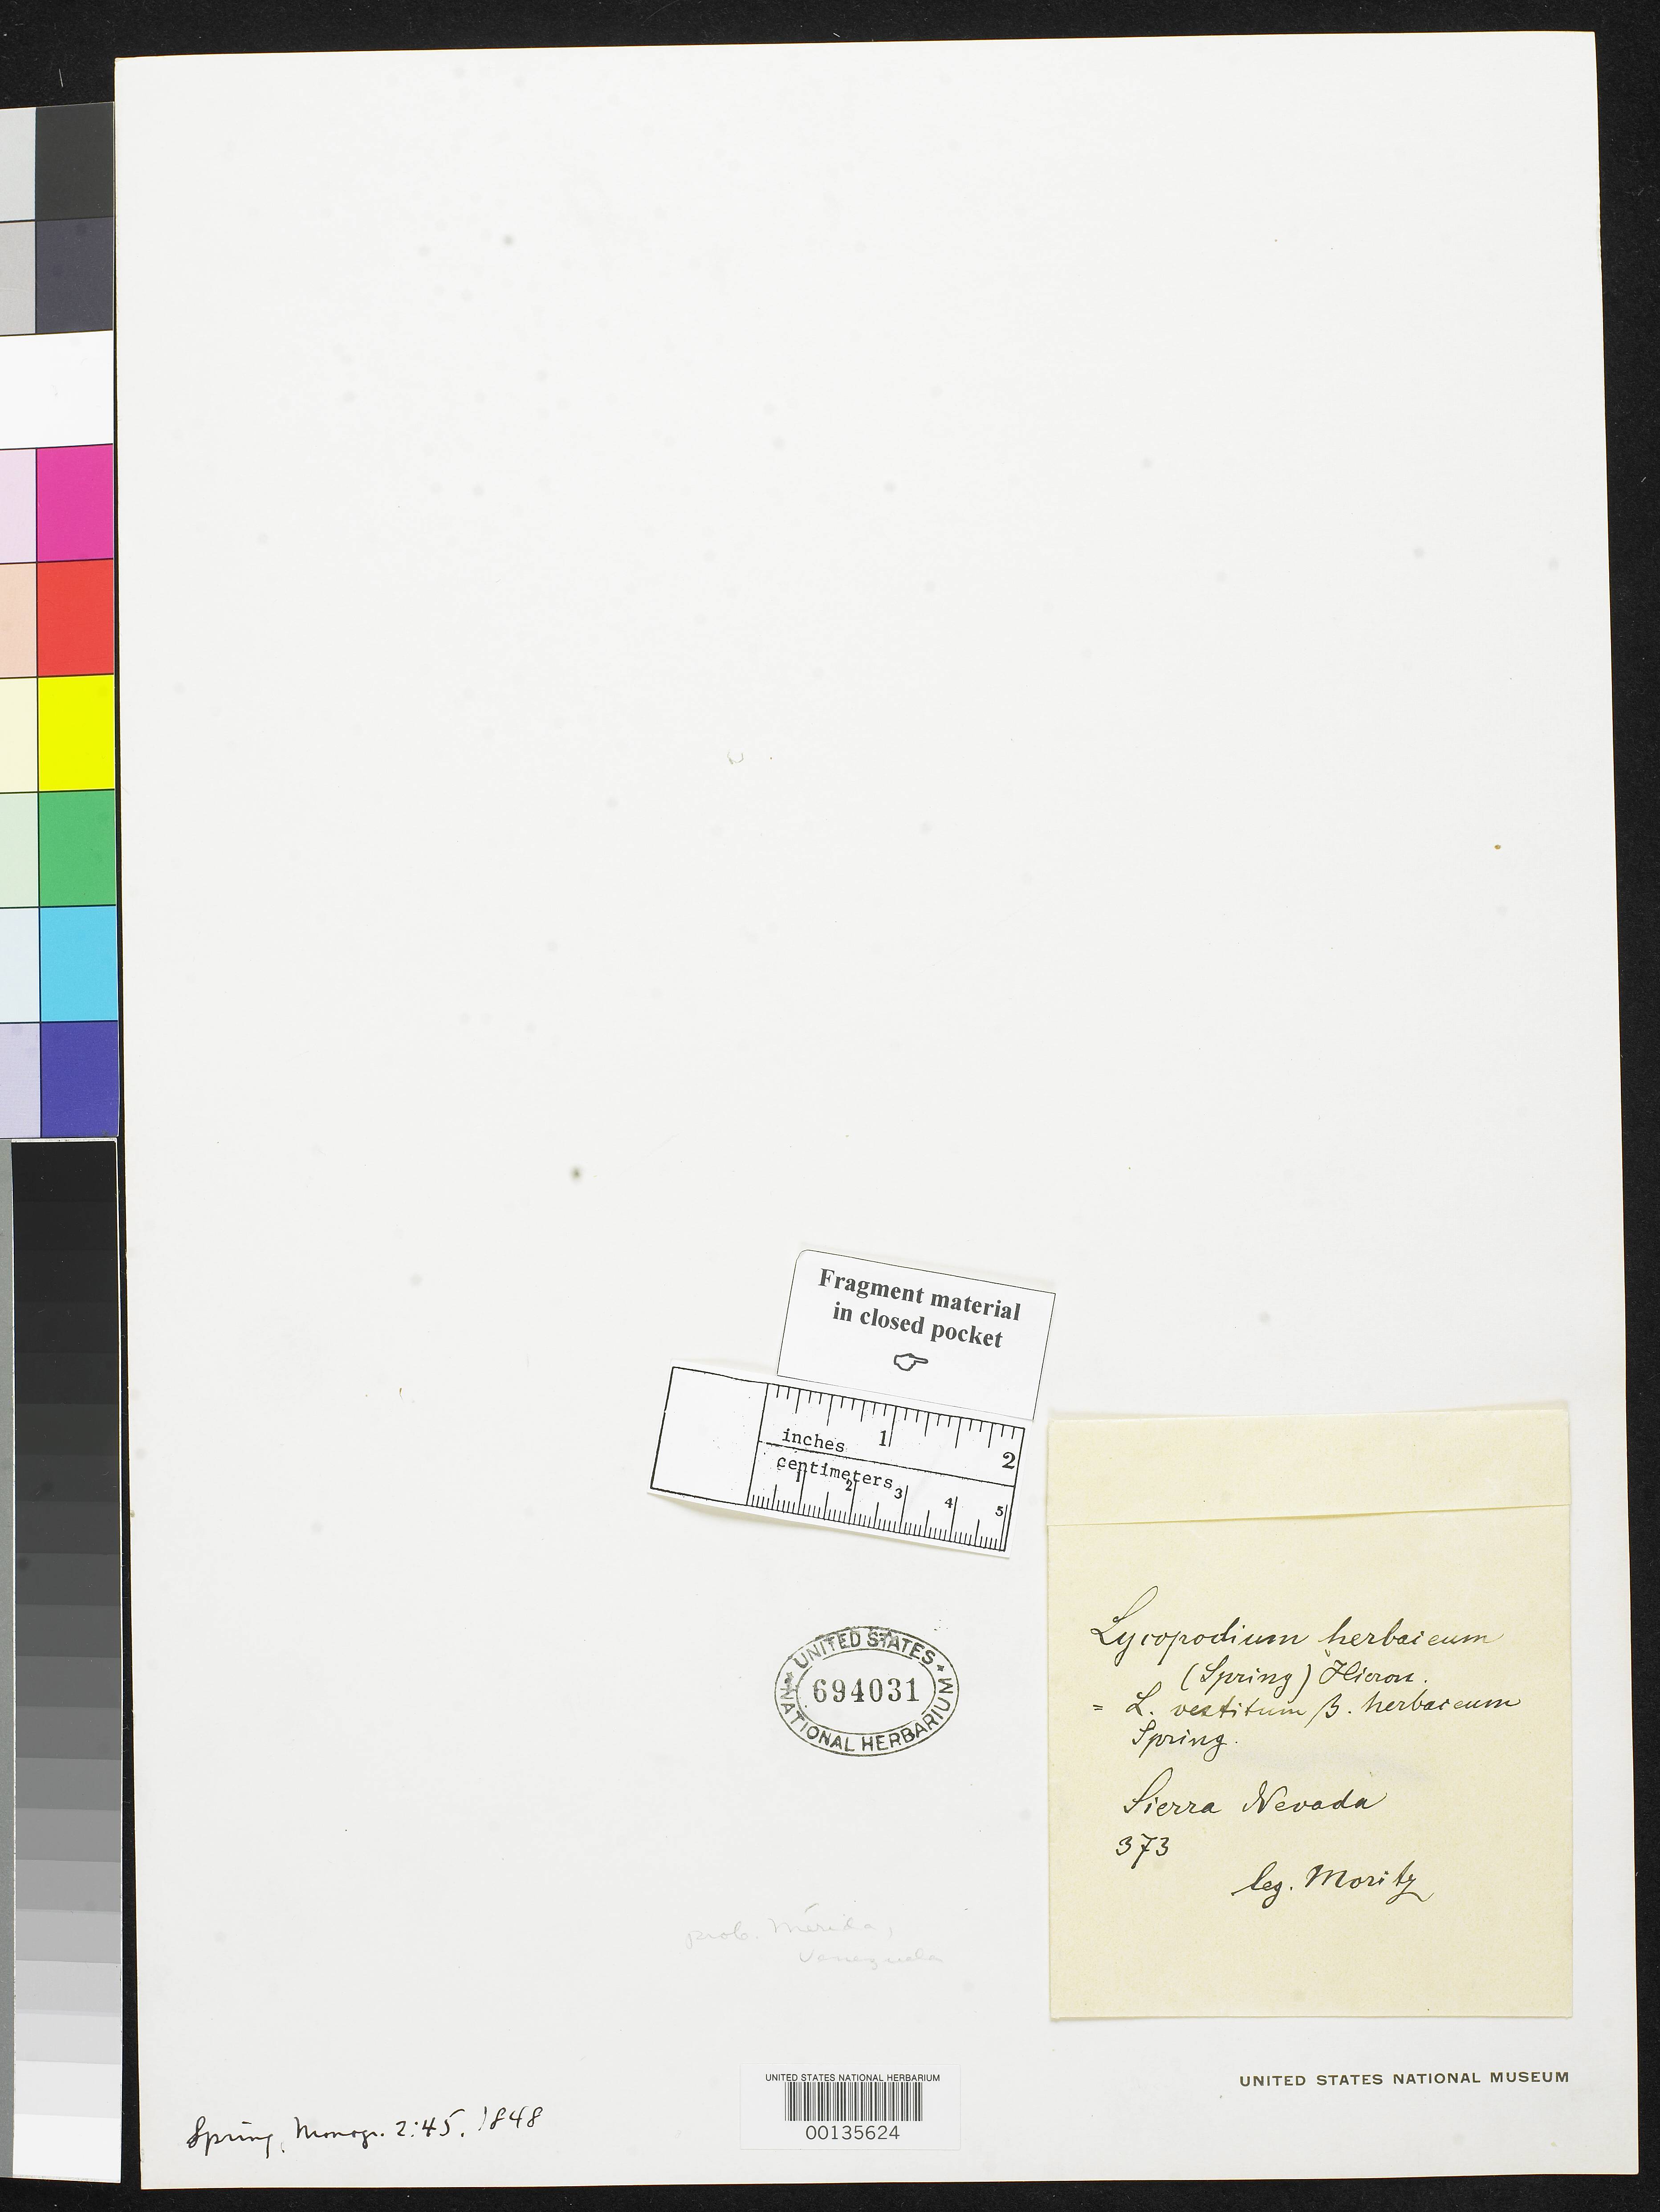 Fragment material
in closed pocket
inches 1 2
centimeters
1 2 3 4 5
UNITED STATES
694031
NATIONAL HERBARIUM
Lycopodium herbaceum
(Spring) Hieron.
= L. vestitum β. herbaceum
Spring.
Sierra Nevada
373
leg. Moritz
prob. Mérida,
Venezuela
UNITED STATES NATIONAL HERBARIUM
00135624
UNITED STATES NATIONAL MUSEUM
Spring, Monogr. 2:45. 1848